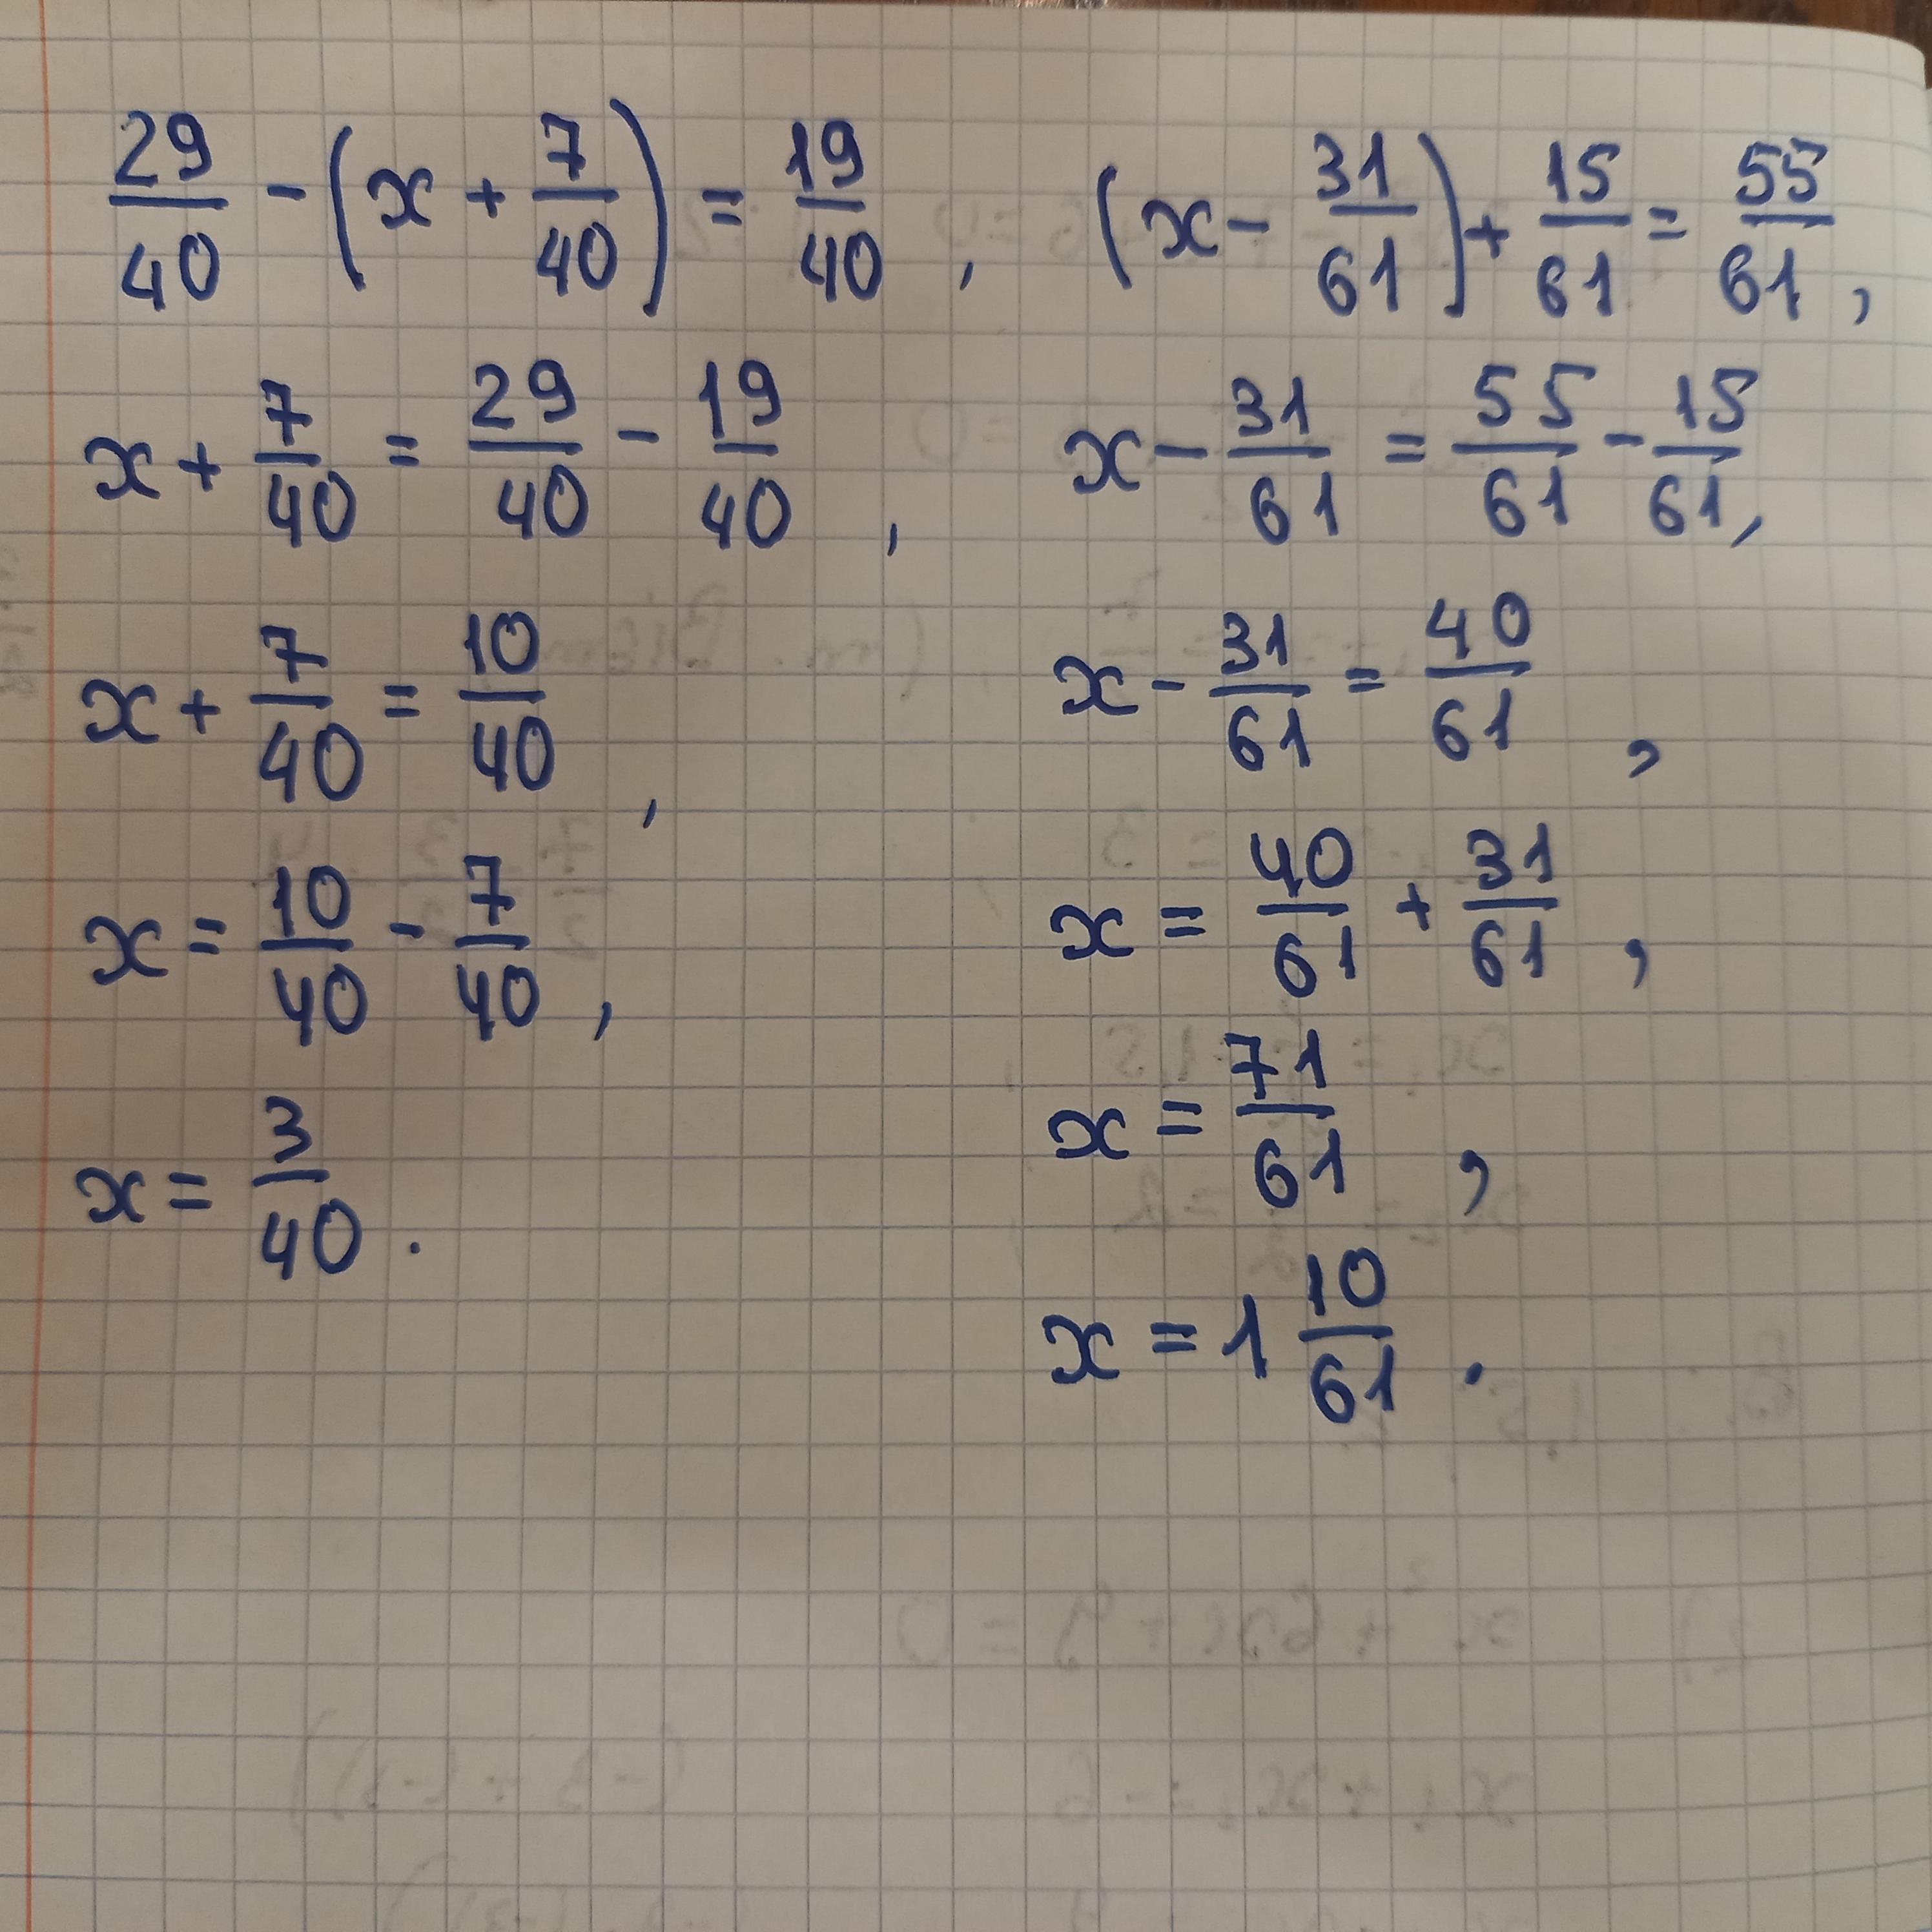 29/40 - (x + 7/40) = 19/40,
x + 7/40 = 29/40 - 19/40,
x + 7/40 = 10/40,
x = 10/40 - 7/40,
x = 3/40.
(x - 31/61) + 15/61 = 55/61,
x - 31/61 = 55/61 - 15/61,
x - 31/61 = 40/61,
x = 40/61 + 31/61,
x = 71/61,
x = 1 10/61.